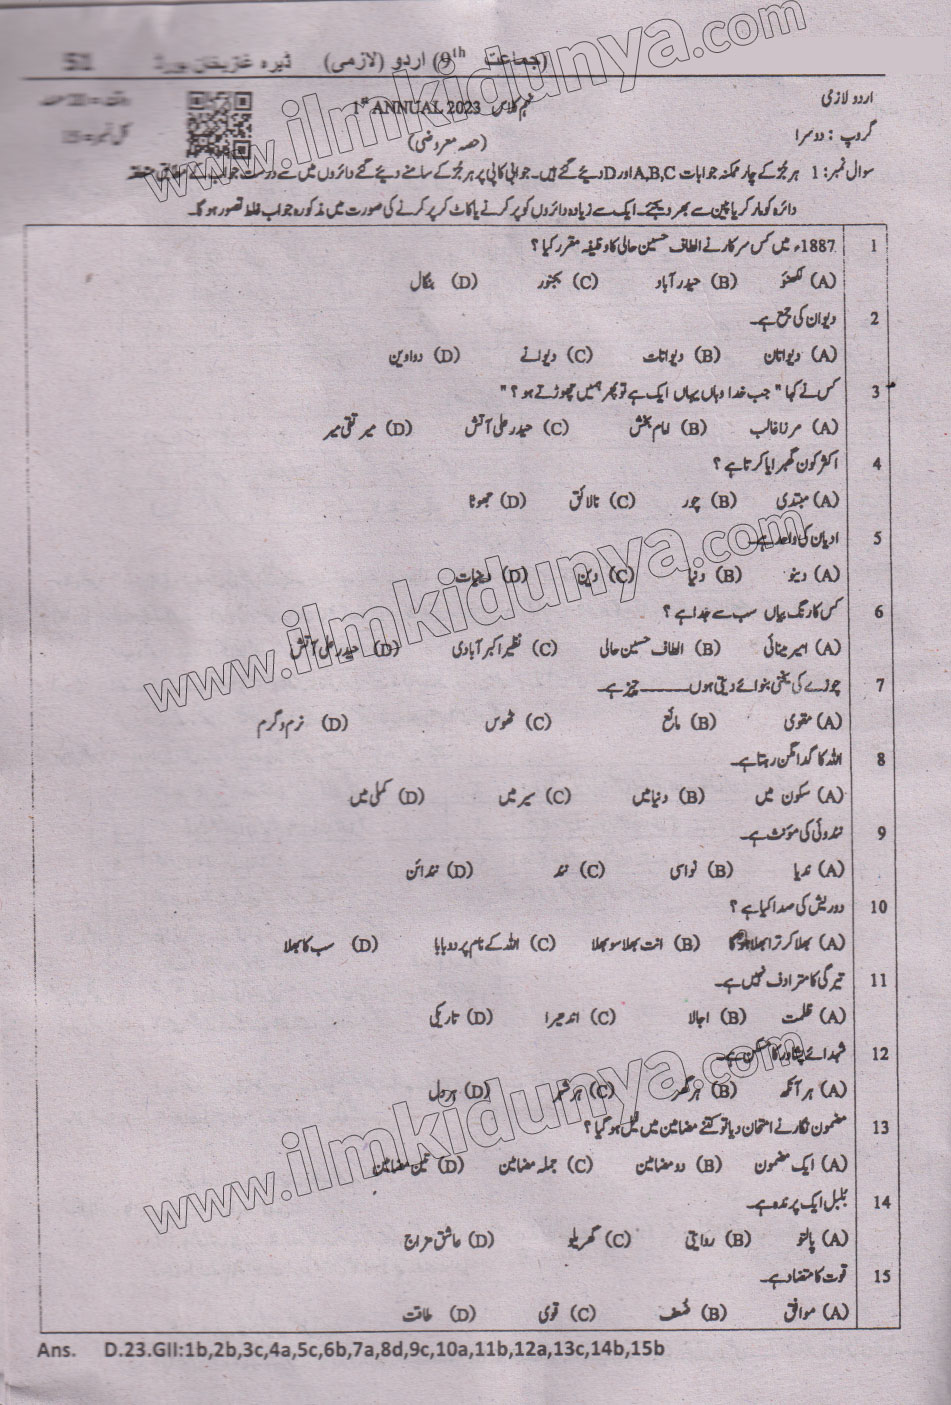 (جماعت 9th) اردو (لازمی) ڈیرہ غازیخان بورڈ 51
اردو لازمی نہم کلاس 1st ANNUAL 2023
گروپ : دوسرا (حصہ معروضی) کل نمبر = 15
سوال نمبر: 1 ہر جُز کے چار ممکنہ جوابات A,B,C اور D دیئے گئے ہیں۔ جوابی کاپی پر ہر جُز کے سامنے دیئے گئے دائروں میں سے درست جواب کے مطابق متعلقہ
دائرہ کو مارکر یا پین سے بھر دیجئے۔ ایک سے زیادہ دائروں کو پُر کرنے یا کاٹ کر پُر کرنے کی صورت میں مذکورہ جواب غلط تصور ہوگا۔
1 1887ء میں کس سرکار نے الطاف حسین حالی کا وظیفہ مقرر کیا ؟
(A) لکھنؤ (B) حیدرآباد (C) بجنور (D) بنگال
2 دیوان کی جمع ہے۔
(A) دیوانان (B) دیوانات (C) دیوانے (D) دواوین
3 کس نے کہا " جب خدا وہاں یہاں ایک ہے تو پھر ہمیں چھوڑتے ہو ؟ "
(A) مرزا غالب (B) امام بخش (C) حیدر علی آتش (D) میر تقی میر
4 اکثر کون گھبرایا کرتا ہے ؟
(A) مبتدی (B) چور (C) نالائق (D) جھوٹا
5 ادیان کی واحد ہے۔
(A) دینو (B) دنیا (C) دین (D) دینیات
6 کس کا رنگ بیاں سب سے جدا ہے ؟
(A) امیر مینائی (B) الطاف حسین حالی (C) نظیر اکبر آبادی (D) حیدر علی آتش
7 چوزے کی یخنی بنوائے دیتی ہوں ــــــــــ چیز ہے۔
(A) مقوی (B) مائع (C) ٹھوس (D) نرم و گرم
8 اللہ کا گدا مگن رہتا ہے۔
(A) سکون میں (B) دنیا میں (C) سیر میں (D) کملی میں
9 نندوئی کی مؤنث ہے۔
(A) ندیا (B) نواسی (C) نند (D) نندائن
10 درویش کی صدا کیا ہے ؟
(A) بھلا کر ترا بھلا ہوگا (B) انت بھلا سو بھلا (C) اللہ کے نام پر دو بابا (D) سب کا بھلا
11 تیرگی کا مترادف نہیں ہے۔
(A) ظلمت (B) اجالا (C) اندھیرا (D) تاریکی
12 شہدائے پشاور کا مسکن ہے۔
(A) ہر آنکھ (B) ہر گھر (C) ہر شہر (D) ہر دل
13 مضمون نگار نے امتحان دیا تو کتنے مضامین میں فیل ہو گیا ؟
(A) ایک مضمون (B) دو مضامین (C) جملہ مضامین (D) تین مضامین
14 بلبل ایک پرندہ ہے۔
(A) پالتو (B) روایتی (C) گھریلو (D) عاشق مزاج
15 قوت کا متضاد ہے۔
(A) موافق (B) ضُعف (C) قوی (D) طاقت
Ans. D.23.GII:1b,2b,3c,4a,5c,6b,7a,8d,9c,10a,11b,12a,13c,14b,15b
www.ilmkidunya.com
www.ilmkidunya.com
www.ilmkidunya.com